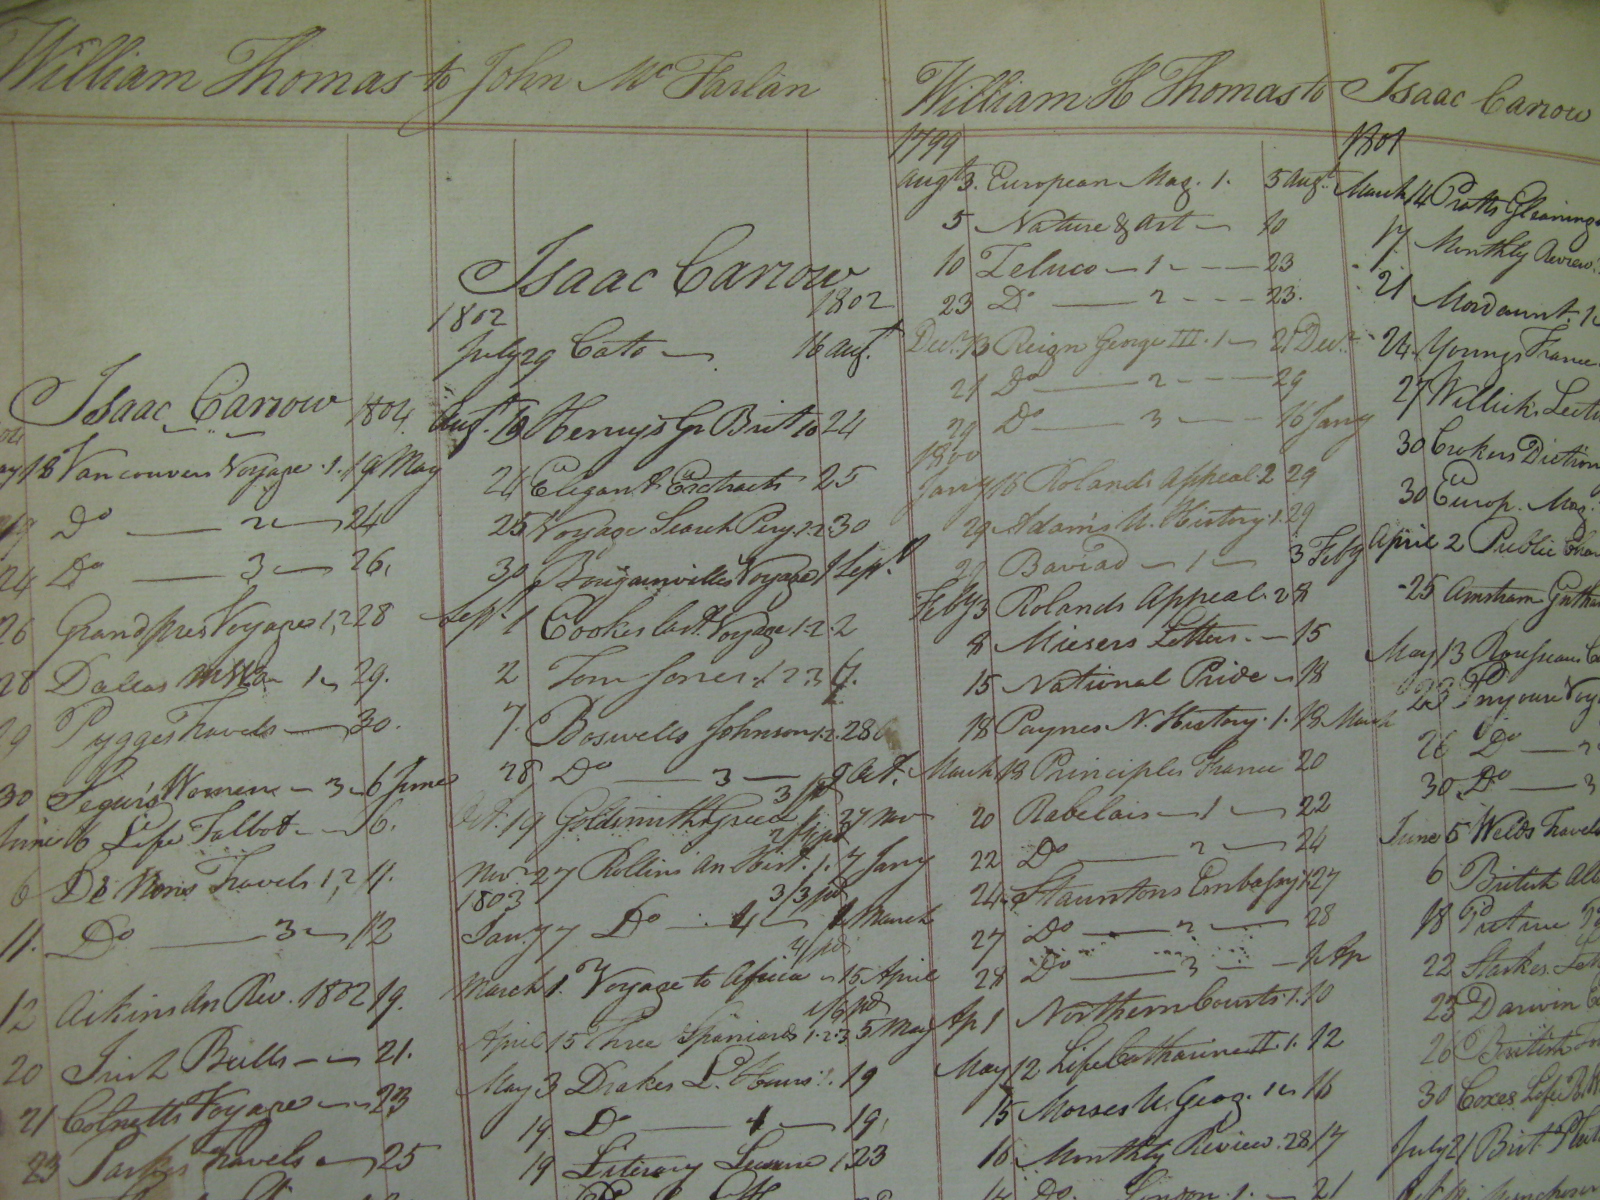 William Thomas to John McFarlan
Isaac Carrow 1804
18 Vancouvers Voyage .1. 19 May
19 Do — 2 — 24
24 Do — 3 — 26.
26 Grandpres Voyages 1,2 28
28 Dallas 1 29.
29 Pygges Travels — 30.
30 Segur's Women — 3 — 6 June
June 6 Life Talbot — 6.
6 De Travels 1,2 11.
11. Do — 3 — 12
12 Aikins An Rev. 1802 19.
20 Irish Bulls — 21.
21 Colnetts Voyage — 23
23 Parkes Travels — 25
Isaac Carrow
1802 1802
July 29 Cato — 16 augt.
Augt. Henrys Gr Brit 10 24
24 Elegant Extracts 25
25 Voyage Search Pery. 1.2. 30
30 Bougainvilles Voyage 1 Sept.
Sept. 1 Cookes last Voyage 1.2. 2
2 Tom Jones 1 2 3 7.
7. Boswells Johnson 1.2. 28
28 Do — 3 — Oct.
Oct. 19 Goldsmiths Greece 27 Nov
Nov 27 Rollins An Hist. 1. 7 Jany
1803
Jany 7 Do 4 1 March
March 1. Voyage to Africa — 15 April
April 15 Three Spaniards 1.2.3 5 May
May 3 Drakes L. Hours 1. 19
19 Do — 19
19 Literary Leisure 1 23
William H Thomas to Isaac Carrow
1799
Augt 3. European Mag. 1. 5 Augt
5 Nature & Art — 10
10 Zeluco — 1 — 23
23 Do — 2 — 23.
Decr. 13 Reign George III. 1 — 21 Decr.
21 Do — 2 — 29
29 Do — 3 — 16 Jany
1800
Jany 16 Rolands Appeal 2 29
29 Adams N. History. 1. 29
29 Baviad — 1 — 3 Feby
Feby 3 Rolands Appeal. 2 8
8 Miesers Letters. — 15
15 National Pride — 18
18 Paynes N. History. 1. 13 March
March 13 Principles France 20
20 Rabelais — 1 — 22
22 Do — 2 — 24
24 Stauntons Embassy 1 27
27 Do — 2 — 28
28 Do — 3 — Ap
Ap 1 Northern Courts. 1. 10
May 12 Life Catharine II. 1. 12
15 Morses N. Geog. 1 16
16 Monthly Review. 28 17
Do London. 1. — 21
1801
March 14 Pratts Gleanings
17 Monthly Review
21 Mordaunt. 1
24 Youngs France
27 Willichs
30 Crokers
30 Europ. Mag.
April 2 Public
25
May 13
23 Voy
26 Do — 2
30 Do — 3
June 5 Welds Travels
6 British
18
22
25 Darwin
26 British
30 Coxes Life
July 21 Brit